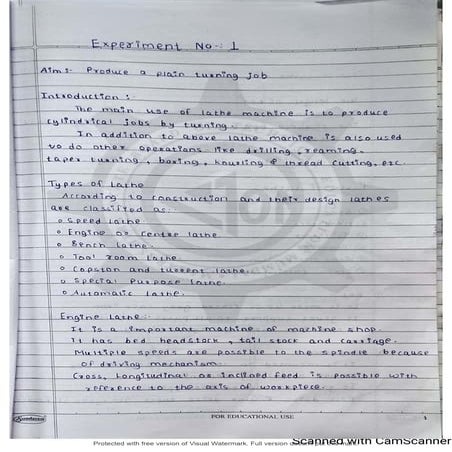 Experiment No:- 1
Aim:- Produce a plain turning Job
Introduction:-
The main use of lathe machine is to produce
cylindrical jobs by turning.
In addition to above lathe machine is also used
to do other operations like drilling, reaming,
taper turning, boring, knurling & thread cutting, etc.
Types of Lathe
According to construction and their design lathes
are classified as.
Speed lathe
Engine or centre lathe.
Bench lathe.
Tool room lathe
Capston and turrent lathe.
Special Purpose lathe.
Automatic lathe.
Engine lathe:-
It is a important machine of machine shop.
It has bed headstock, tail stock and carriage.
Multiple speeds are possible to the spindle because
of driving mechanism.
Cross, Longitudinal or inclined feed is possible with
reference to the axis of workpiece.
FOR EDUCATIONAL USE
Protected with free version of Visual Watermark. Full version
Scanned with CamScanner